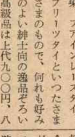 フリツタイといつたさま
さまのもので、何れも好み
のよい紳士向の逸品ぞろい
高級品は上代九〇〇円、八